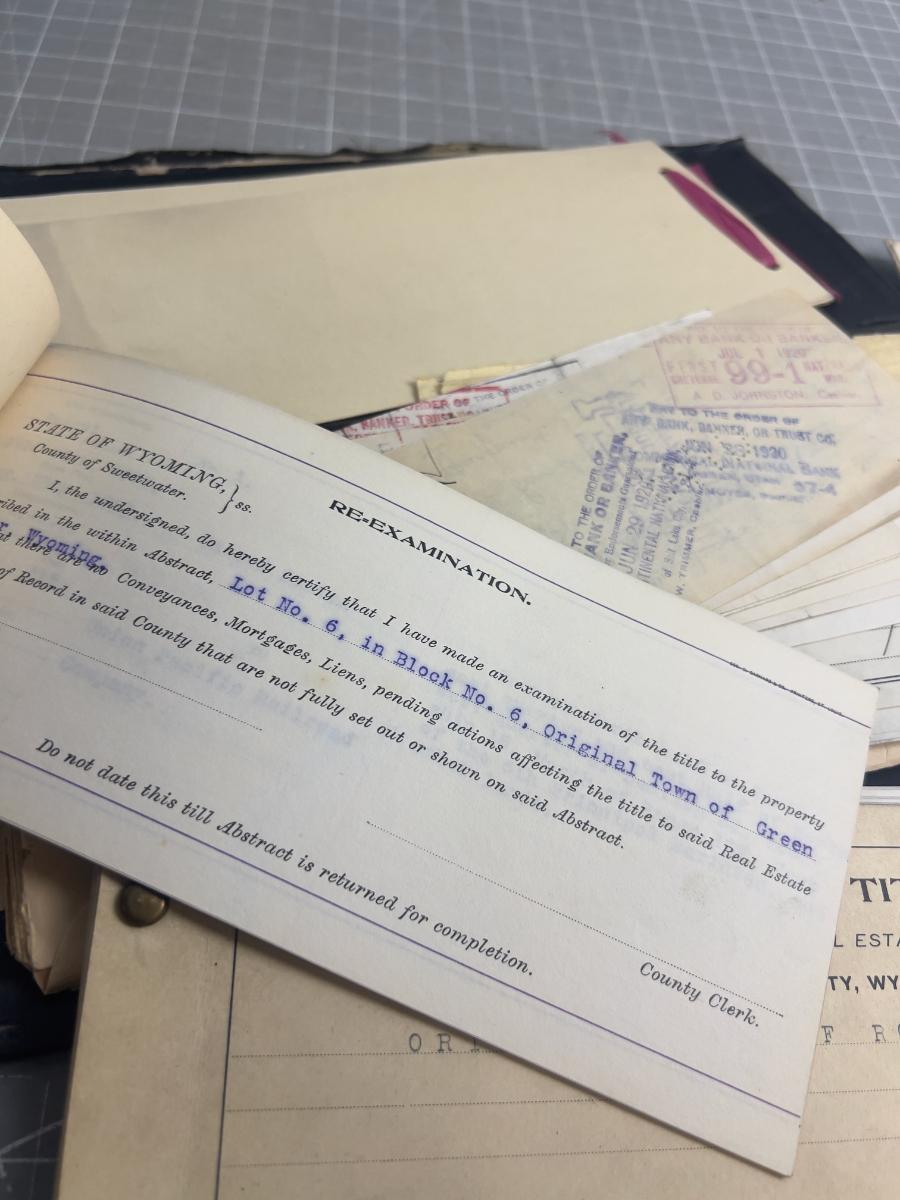 RE-EXAMINATION.
STATE OF WYOMING,
County of Sweetwater.
} ss.
I, the undersigned, do hereby certify that I have made an examination of the title to the property
ribed in the within Abstract, Lot No. 6, in Block No. 6, Original Town of Green
r, Wyoming,
at there are no Conveyances, Mortgages, Liens, pending actions affecting the title to said Real Estate
of Record in said County that are not fully set out or shown on said Abstract.
County Clerk.
Do not date this till Abstract is returned for completion.
ANY BANK OR BANKER
JUL 1 1920
FIRST 99-1 NAT
CHEYENNE WYO.
A. D. JOHNSTON, Cashier
ORDER OF
THE ORDER OF
PAY TO THE ORDER OF
ANY BANK, BANKER, OR TRUST CO.
1920
NATIONAL BANK
37-4
TO THE ORDER OF
ANK OR BANKER,
Endorsements Guaranteed
JUN 29 1920
TINENTAL NATIONAL
of Salt Lake City,
W. TRIMMER, Cashier
TIT
L ESTA
TY, WY
ORI
F RO